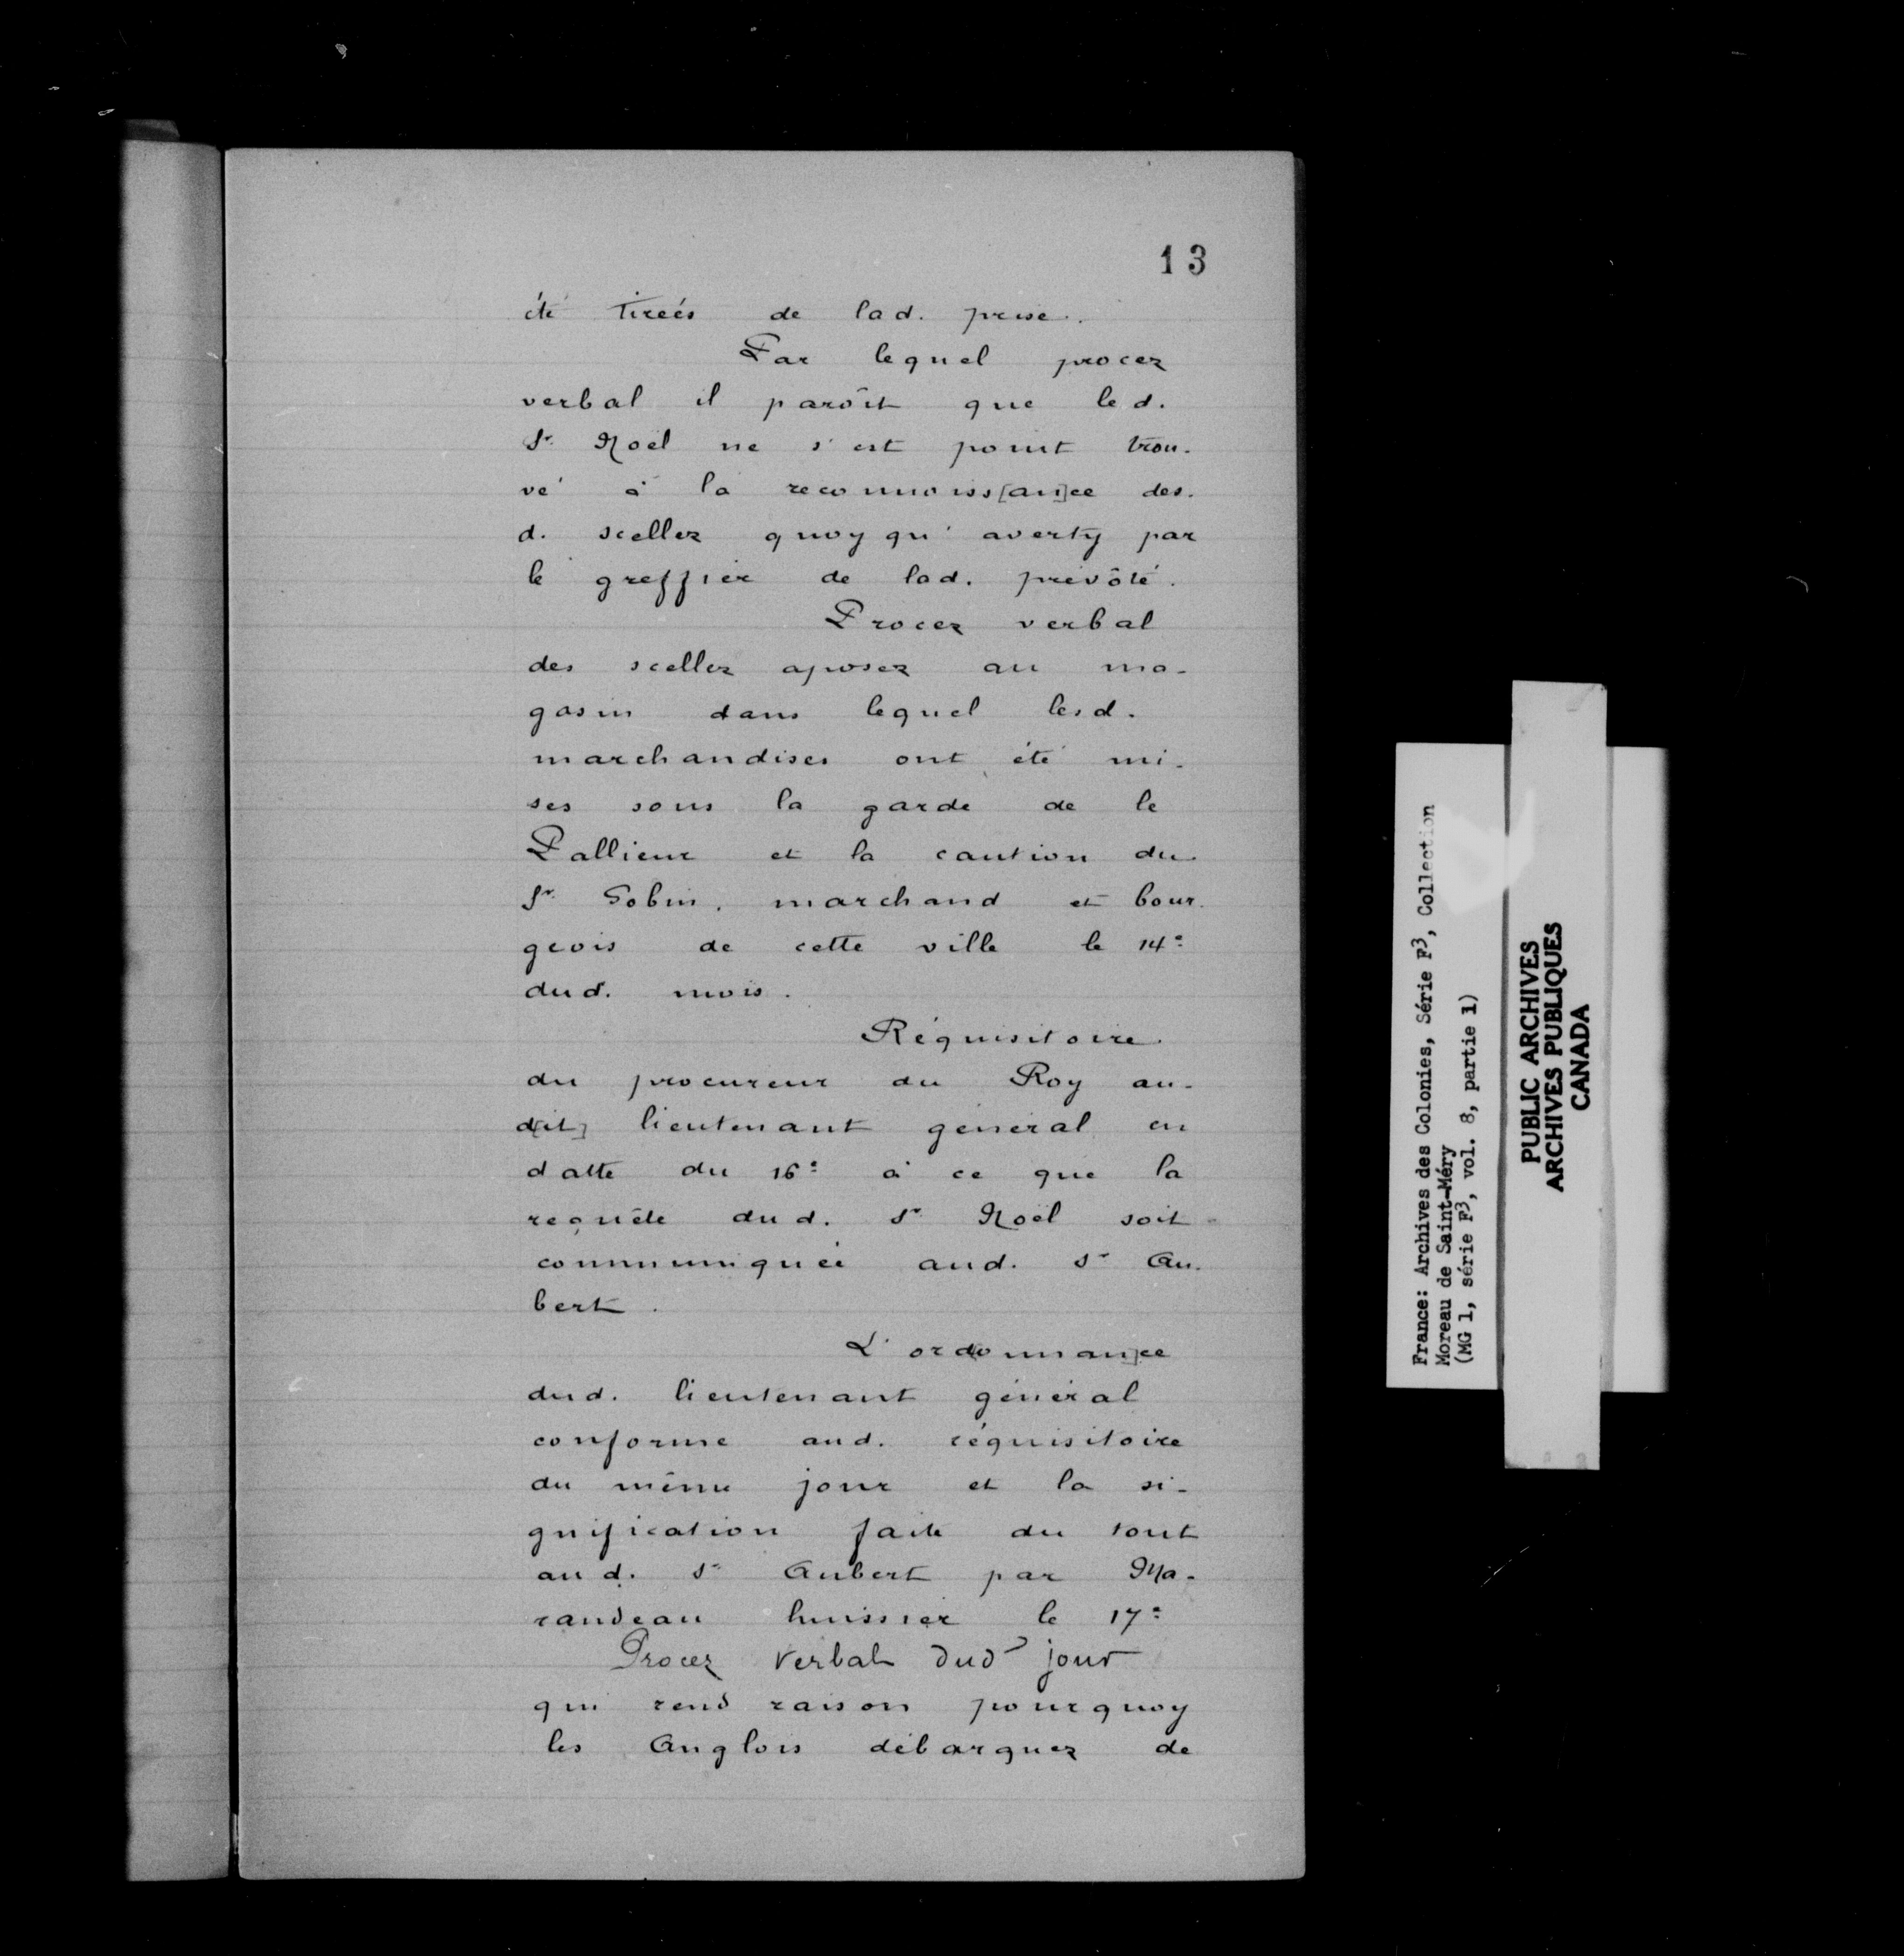 13
été tireés de lad. prise.
Par lequel procez
verbal il parôit que led.
Sr. Noël ne s'est point trou-
vé à la reconnoiss[an]ce des-
d. scellez quoyqu'averty par
le greffier de lad. prévôté.
Procez verbal
des scellez aposez au ma-
gasin dans lequel lesd.
marchandises ont été mi-
ses sous la garde de le
Pallieur et la caution du
Sr. Gobin, marchand et bour-
geois de cette ville le 14e
dud. mois.
Réquisitoire
du procureur du Roy au-
d[it] lieutenant général en
datte du 16e à ce que la
requête dud. Sr Noël soit
communiquée aud. Sr Au-
bert.
L'ord[onnan]ce
dud. lieutenant général
conforme aud. réquisitoire
du même jour et la si-
gnification faite du tout
aud. Sr Aubert par Ma-
randeau huissier le 17e
Procez verbal dud jour
qui rend raison pourquoy
les Anglois débarquez de
France: Archives des Colonies, Série F3, Collection
Moreau de Saint-Méry
(MG 1, série F3, vol. 8, partie 1)
PUBLIC ARCHIVES
ARCHIVES PUBLIQUES
CANADA